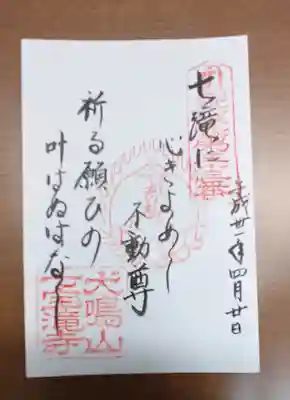 平成卅一年四月廿日
七滝に
心きよめし
不動尊
祈る願ひの
叶はぬはなし
犬鳴山
七寳瀧寺